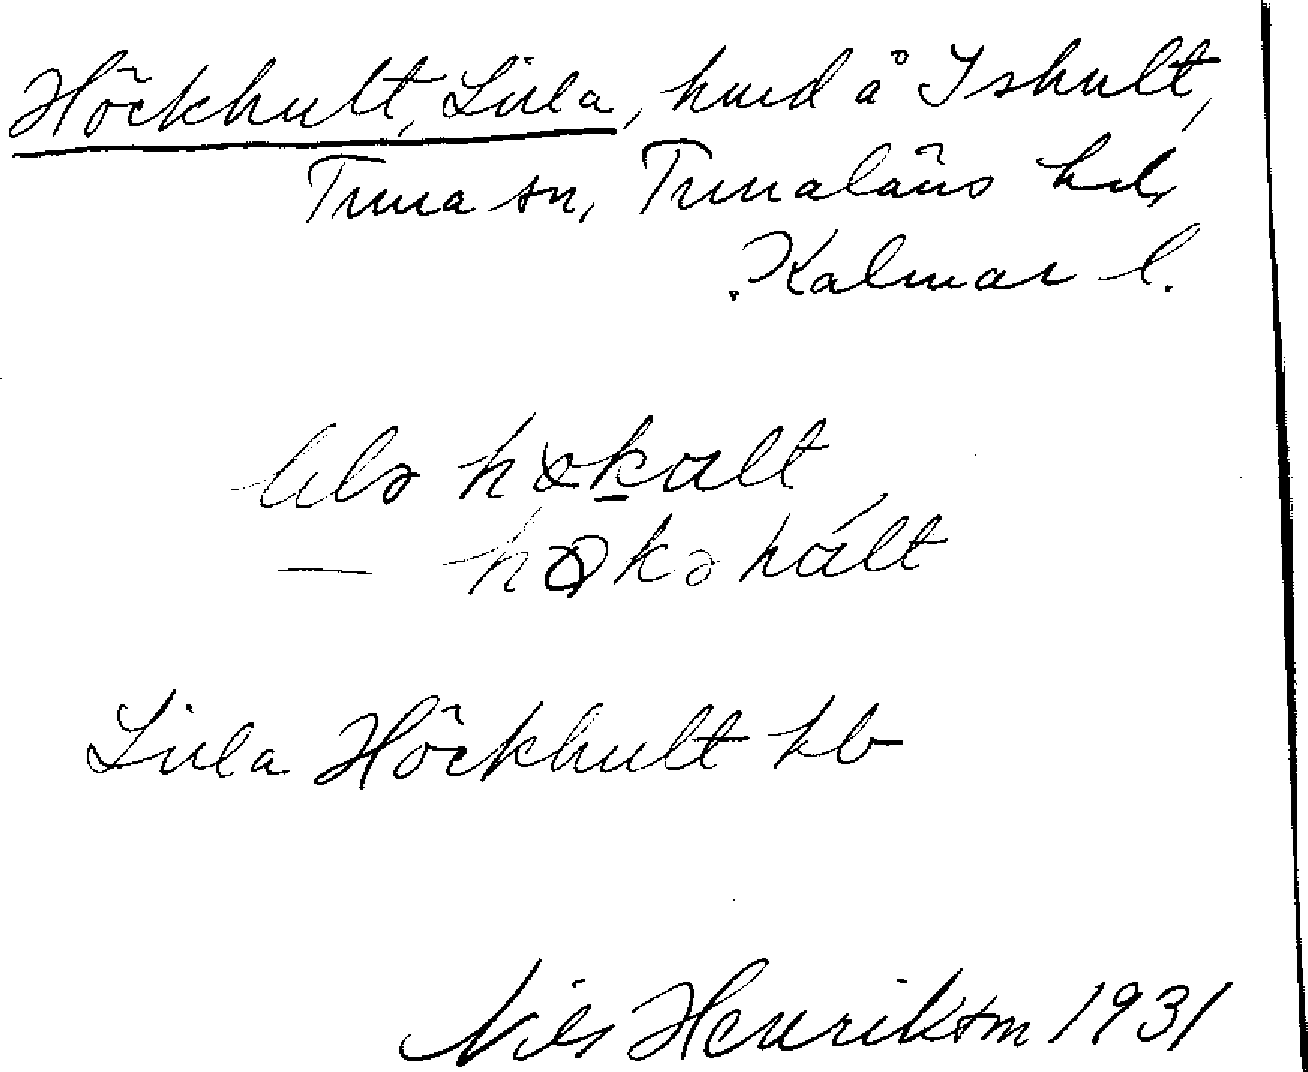 Höckhult, Lilla, hmd å Ishult,
Tuna sn, Tunaläns hd,
Kalmar l.
hökhult
hökəhult
Lilla Höckhult hb
Nils Henrikson 1931